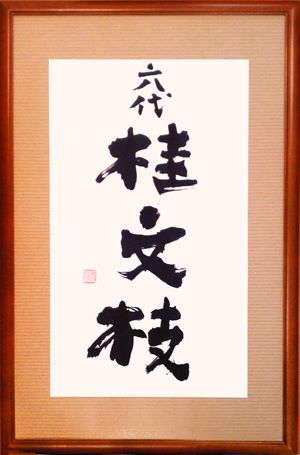 六代
桂文枝